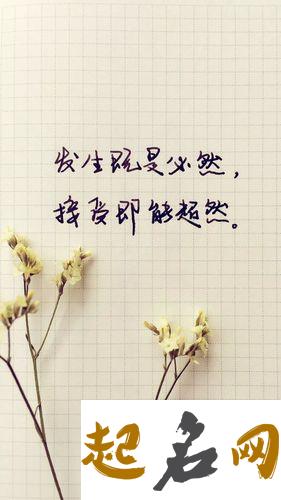 发生既是必然，
接受即能超然。
起名网